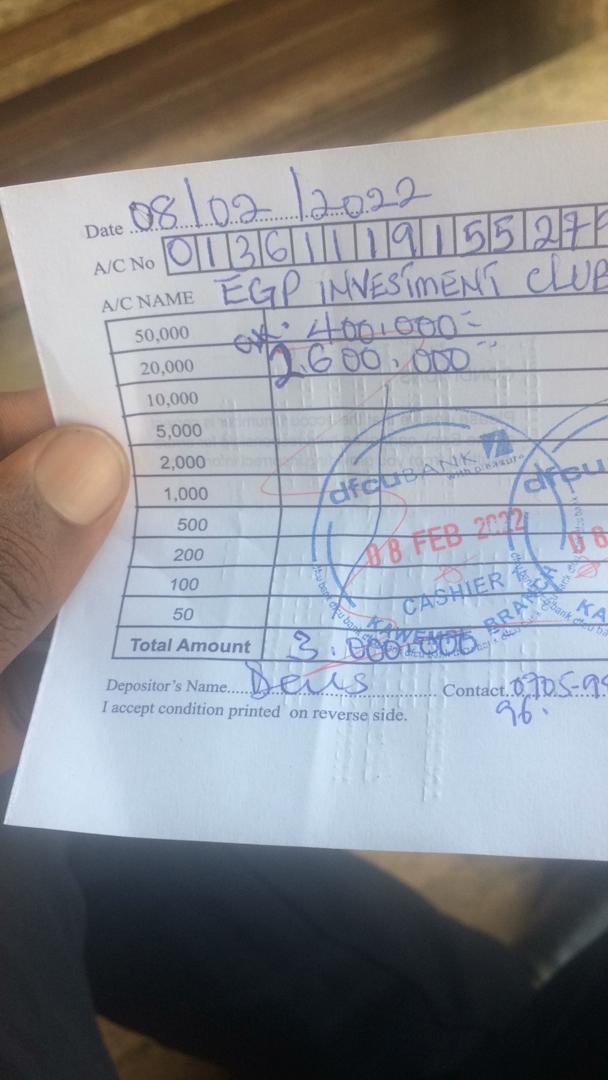 Date 08/02/2022
A/C No 0136111915527
A/C NAME EGP INVESTMENT CLUB
50,000 400.000=
20,000 2.600.000=
10,000
5,000
2,000
1,000
500
200
100
50
Total Amount 3.000.000
dfcu BANK
with pleasure
08 FEB 2022
CASHIER
KAWEMPE BRANCH
dfcu
08
KA
Depositor's Name Deus Contact 0705-9
96.
I accept condition printed on reverse side.